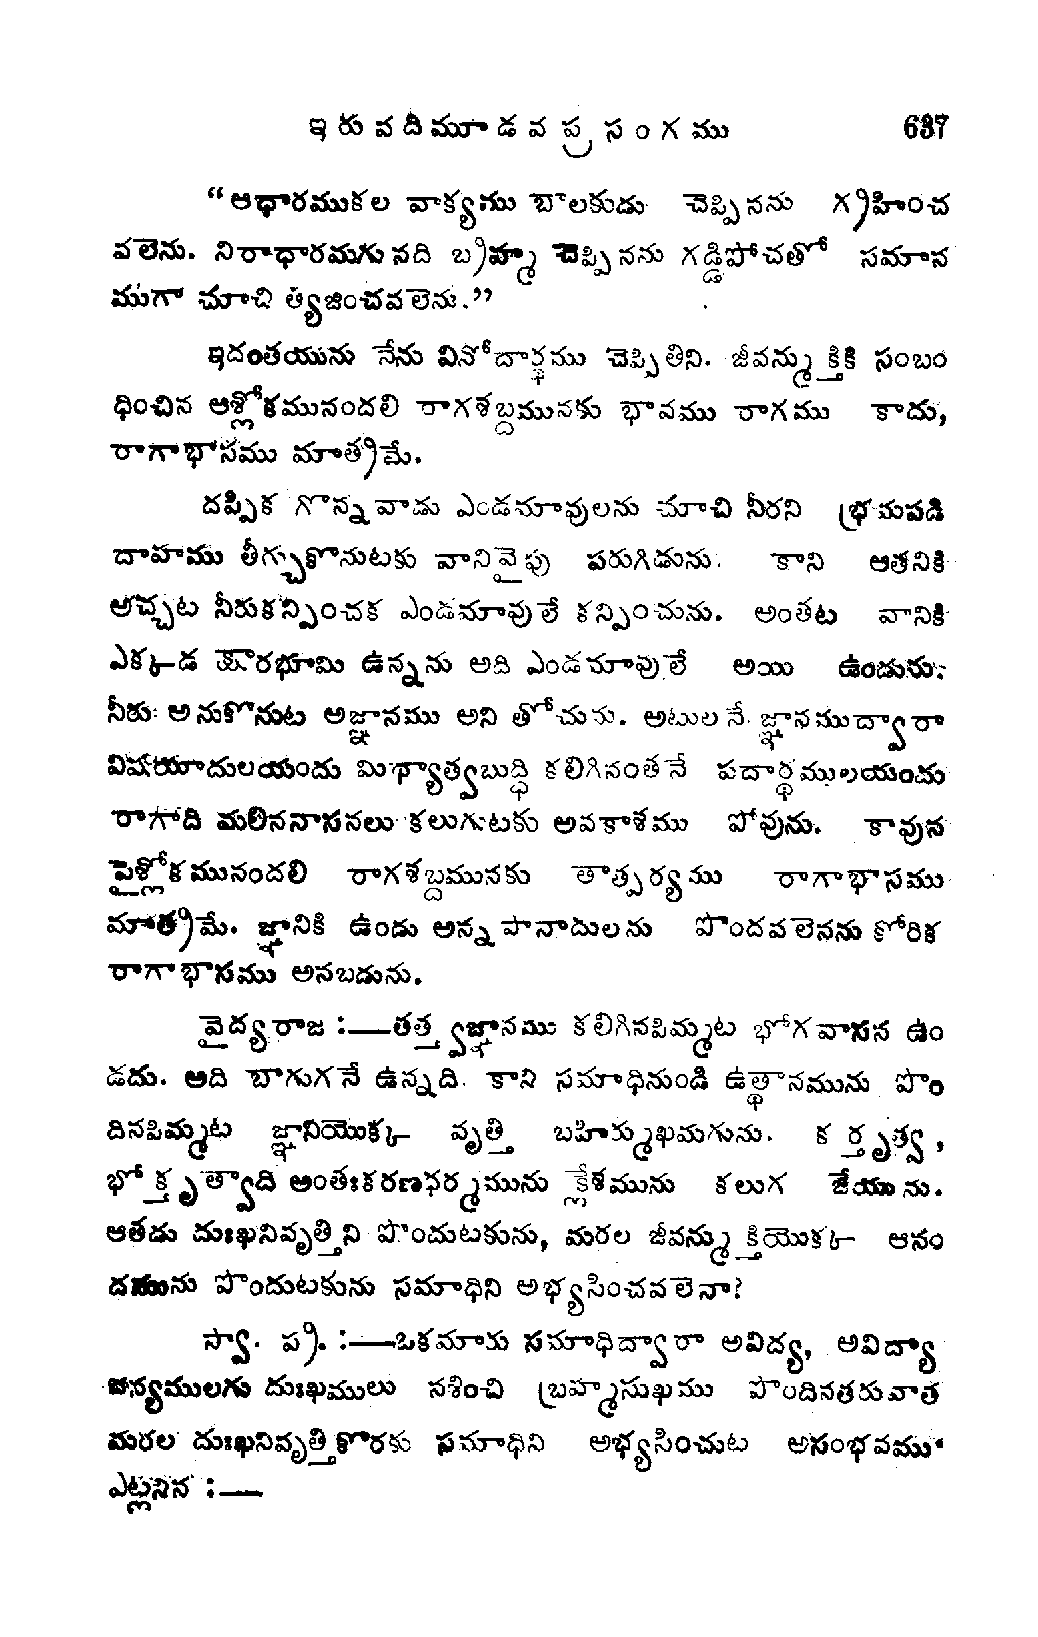 ఇరువదిమూడవ ప్రసంగము 637
“ఆధారముకల వాక్యము బాలకుడు చెప్పినను గ్రహించ
వలెను. నిరాధారమగునది బ్రహ్మ చెప్పినను గడ్డిపోచతో సమాన
ముగా చూచి త్యజించవలెను.”
ఇదంతయును నేను వినోదార్థము చెప్పితిని. జీవన్ముక్తికి సంబం
ధించిన ఆశ్లోకమునందలి రాగశబ్దమునకు భానము రాగము కాదు,
రాగాభాసము మాత్రమే.
దప్పిక గొన్నవాడు ఎండమావులను చూచి నీరని భ్రమపడి
దాహము తీర్చుకొనుటకు వానివైపు పరుగిడును. కాని ఆతనికి
అచ్చట నీరుకన్పించక ఎండమావులే కన్పించును. అంతట వానికి
ఎక్కడ ఊరభూమి ఉన్నను అది ఎండమావులే అయి ఉండును.
నీరు అనుకొనుట అజ్ఞానము అని తోచును. అటులనే జ్ఞానముద్వారా
విషయాదులయందు మిథ్యాత్వబుద్ధి కలిగినంతనే పదార్థములయందు
రాగాది మలినవాసనలు కలుగుటకు అవకాశము పోవును. కావున
పైశ్లోకమునందలి రాగశబ్దమునకు తాత్పర్యము రాగాభాసము
మాత్రమే. జ్ఞానికి ఉండు అన్నపానాదులను పొందవలెనను కోరిక
రాగాభాసము అనబడును.
వైద్యరాజ :—తత్త్వజ్ఞానము కలిగినపిమ్మట భోగవాసన ఉం
డదు. అది బాగుగనే ఉన్నది. కాని సమాధినుండి ఉత్థానమును పొం
దినపిమ్మట జ్ఞానియొక్క వృత్తి బహిర్ముఖమగును. కర్తృత్వ,
భోక్తృత్వాది అంతఃకరణధర్మమును క్లేశమును కలుగ జేయును.
ఆతడు దుఃఖనివృత్తిని పొందుటకును, మరల జీవన్ముక్తియొక్క ఆనం
దమును పొందుటకును సమాధిని అభ్యసించవలెనా?
స్వా. ప్ర. :—ఒకమారు సమాధిద్వారా అవిద్య, అవిద్యా
జన్యములగు దుఃఖములు నశించి బ్రహ్మసుఖము పొందినతరువాత
మరల దుఃఖనివృత్తికొరకు సమాధిని అభ్యసించుట అసంభవము
ఎట్లనిన :—